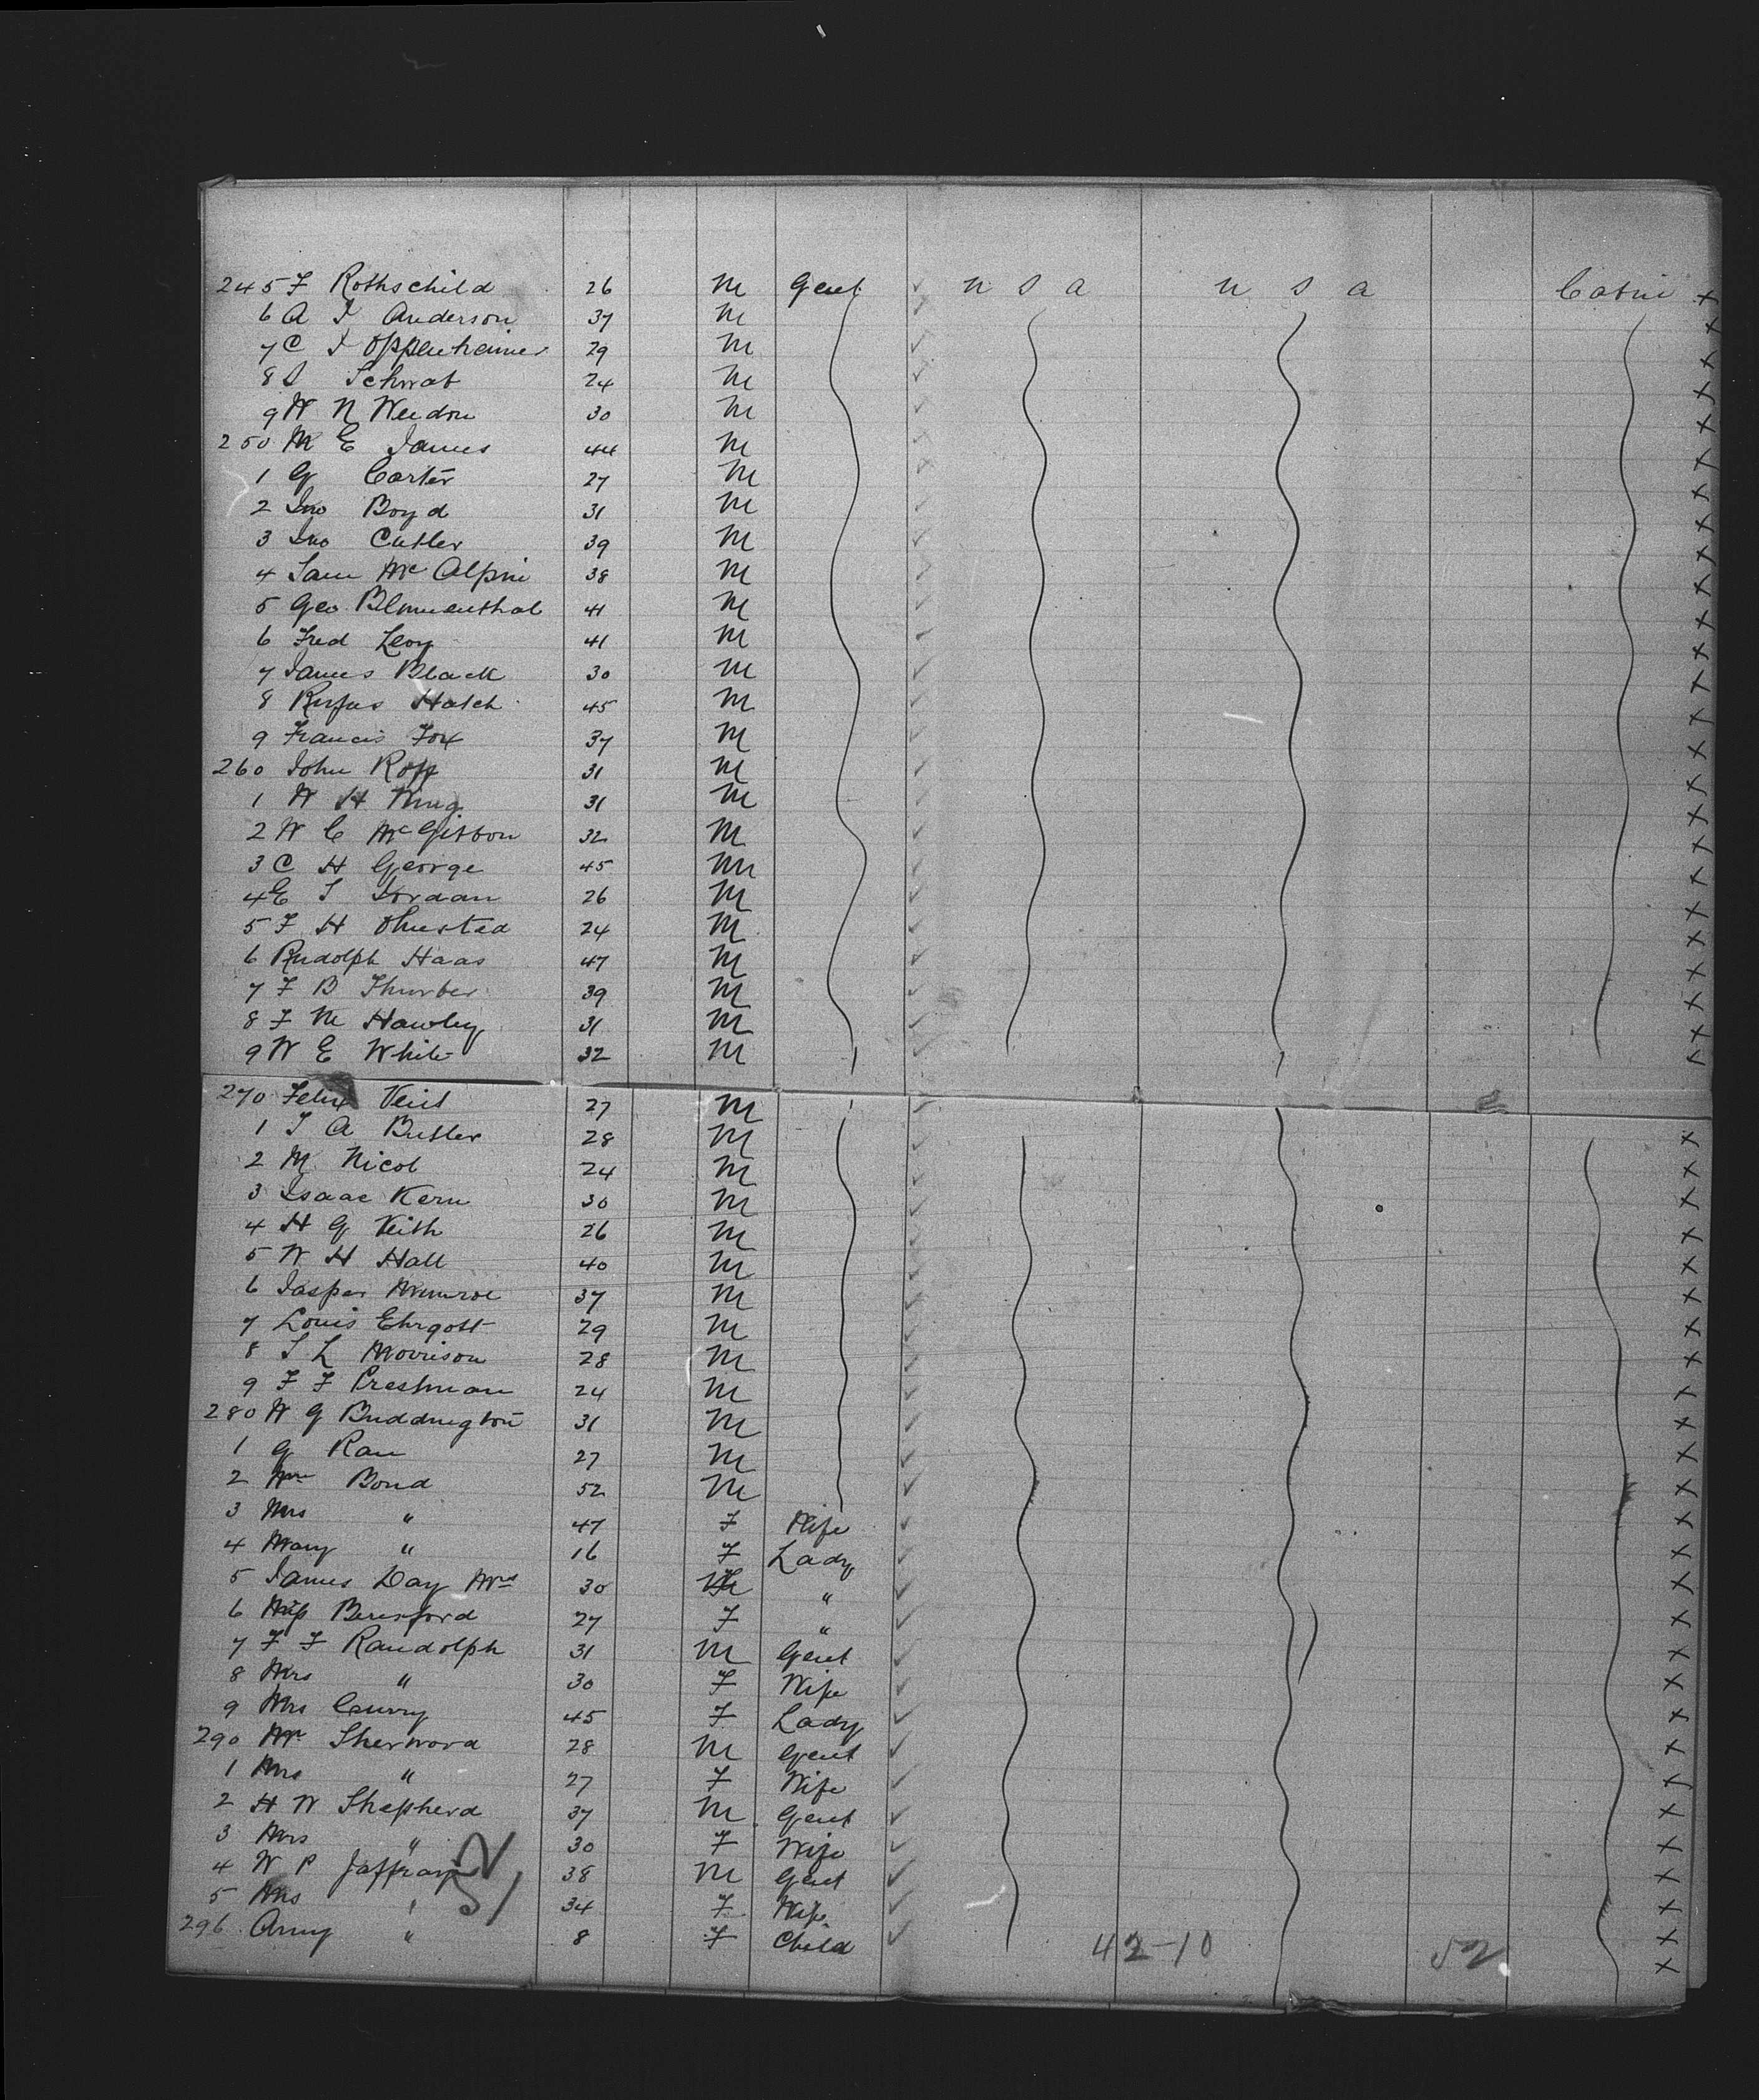 245 F Rothschild 26 M Gent ✓ U S A U S A Cabin X
6 A J Anderson 37 M ✓ X
7 C J Oppenheimer 29 M ✓ X
8 S Schwab 24 M ✓ X
9 W N Weedon 30 M ✓ X
250 M E James 44 M ✓ X
1 G Carter 27 M ✓ X
2 Jno Boyd 31 M ✓ X
3 Jno Cutler 39 M ✓ X
4 Sam McAlpin 38 M ✓ X
5 Geo Blumenthal 41 M ✓ X
6 Fred Levy 41 M ✓ X
7 James Black 30 M ✓ X
8 Rufus Hatch 45 M ✓ X
9 Francis Fox 37 M ✓ X
260 John Ross 31 M ✓ X
1 W H Wing 31 M ✓ X
2 W C McGibbon 32 M ✓ X
3 C H George 45 M ✓ X
4 E S Jordan 26 M ✓ X
5 F H Olmsted 24 M ✓ X
6 Rudolph Haas 47 M ✓ X
7 F B Thurber 39 M ✓ X
8 F M Hawley 31 M ✓ X
9 W E White 32 M ✓ X
270 Felix Veit 27 M ✓ X
1 J A Butler 28 M ✓ X
2 M Nicol 24 M ✓ X
3 Isaac Kern 30 M ✓ X
4 H G Keith 26 M ✓ X
5 W H Hall 40 M ✓ X
6 Jasper Munroe 37 M ✓ X
7 Louis Ehrgott 29 M ✓ X
8 S L Morrison 28 M ✓ X
9 F F Prestman 24 M ✓ X
280 W G Buddington 31 M ✓ X
1 G Rau 27 M ✓ X
2 Wm Bond 52 M ✓ X
3 Mrs " 47 F Wife ✓ X
4 Mary " 16 F Lady ✓ X
5 James Day Mrs 30 F " ✓ X
6 Miss Beresford 27 F " ✓ X
7 F F Randolph 31 M Gent ✓ X
8 Mrs " 30 F Wife ✓ X
9 Mrs Curry 45 F Lady ✓ X
290 Mr Sherwood 28 M Gent ✓ X
1 Mrs " 27 F Wife ✓ X
2 H W Shepherd 37 M Gent ✓ X
3 Mrs " 30 F Wife ✓ X
4 W P Jaffray 38 M Gent ✓ X
5 Mrs " 34 F Wife ✓ X
296 Amy " 8 F Child ✓ X
42-10 52